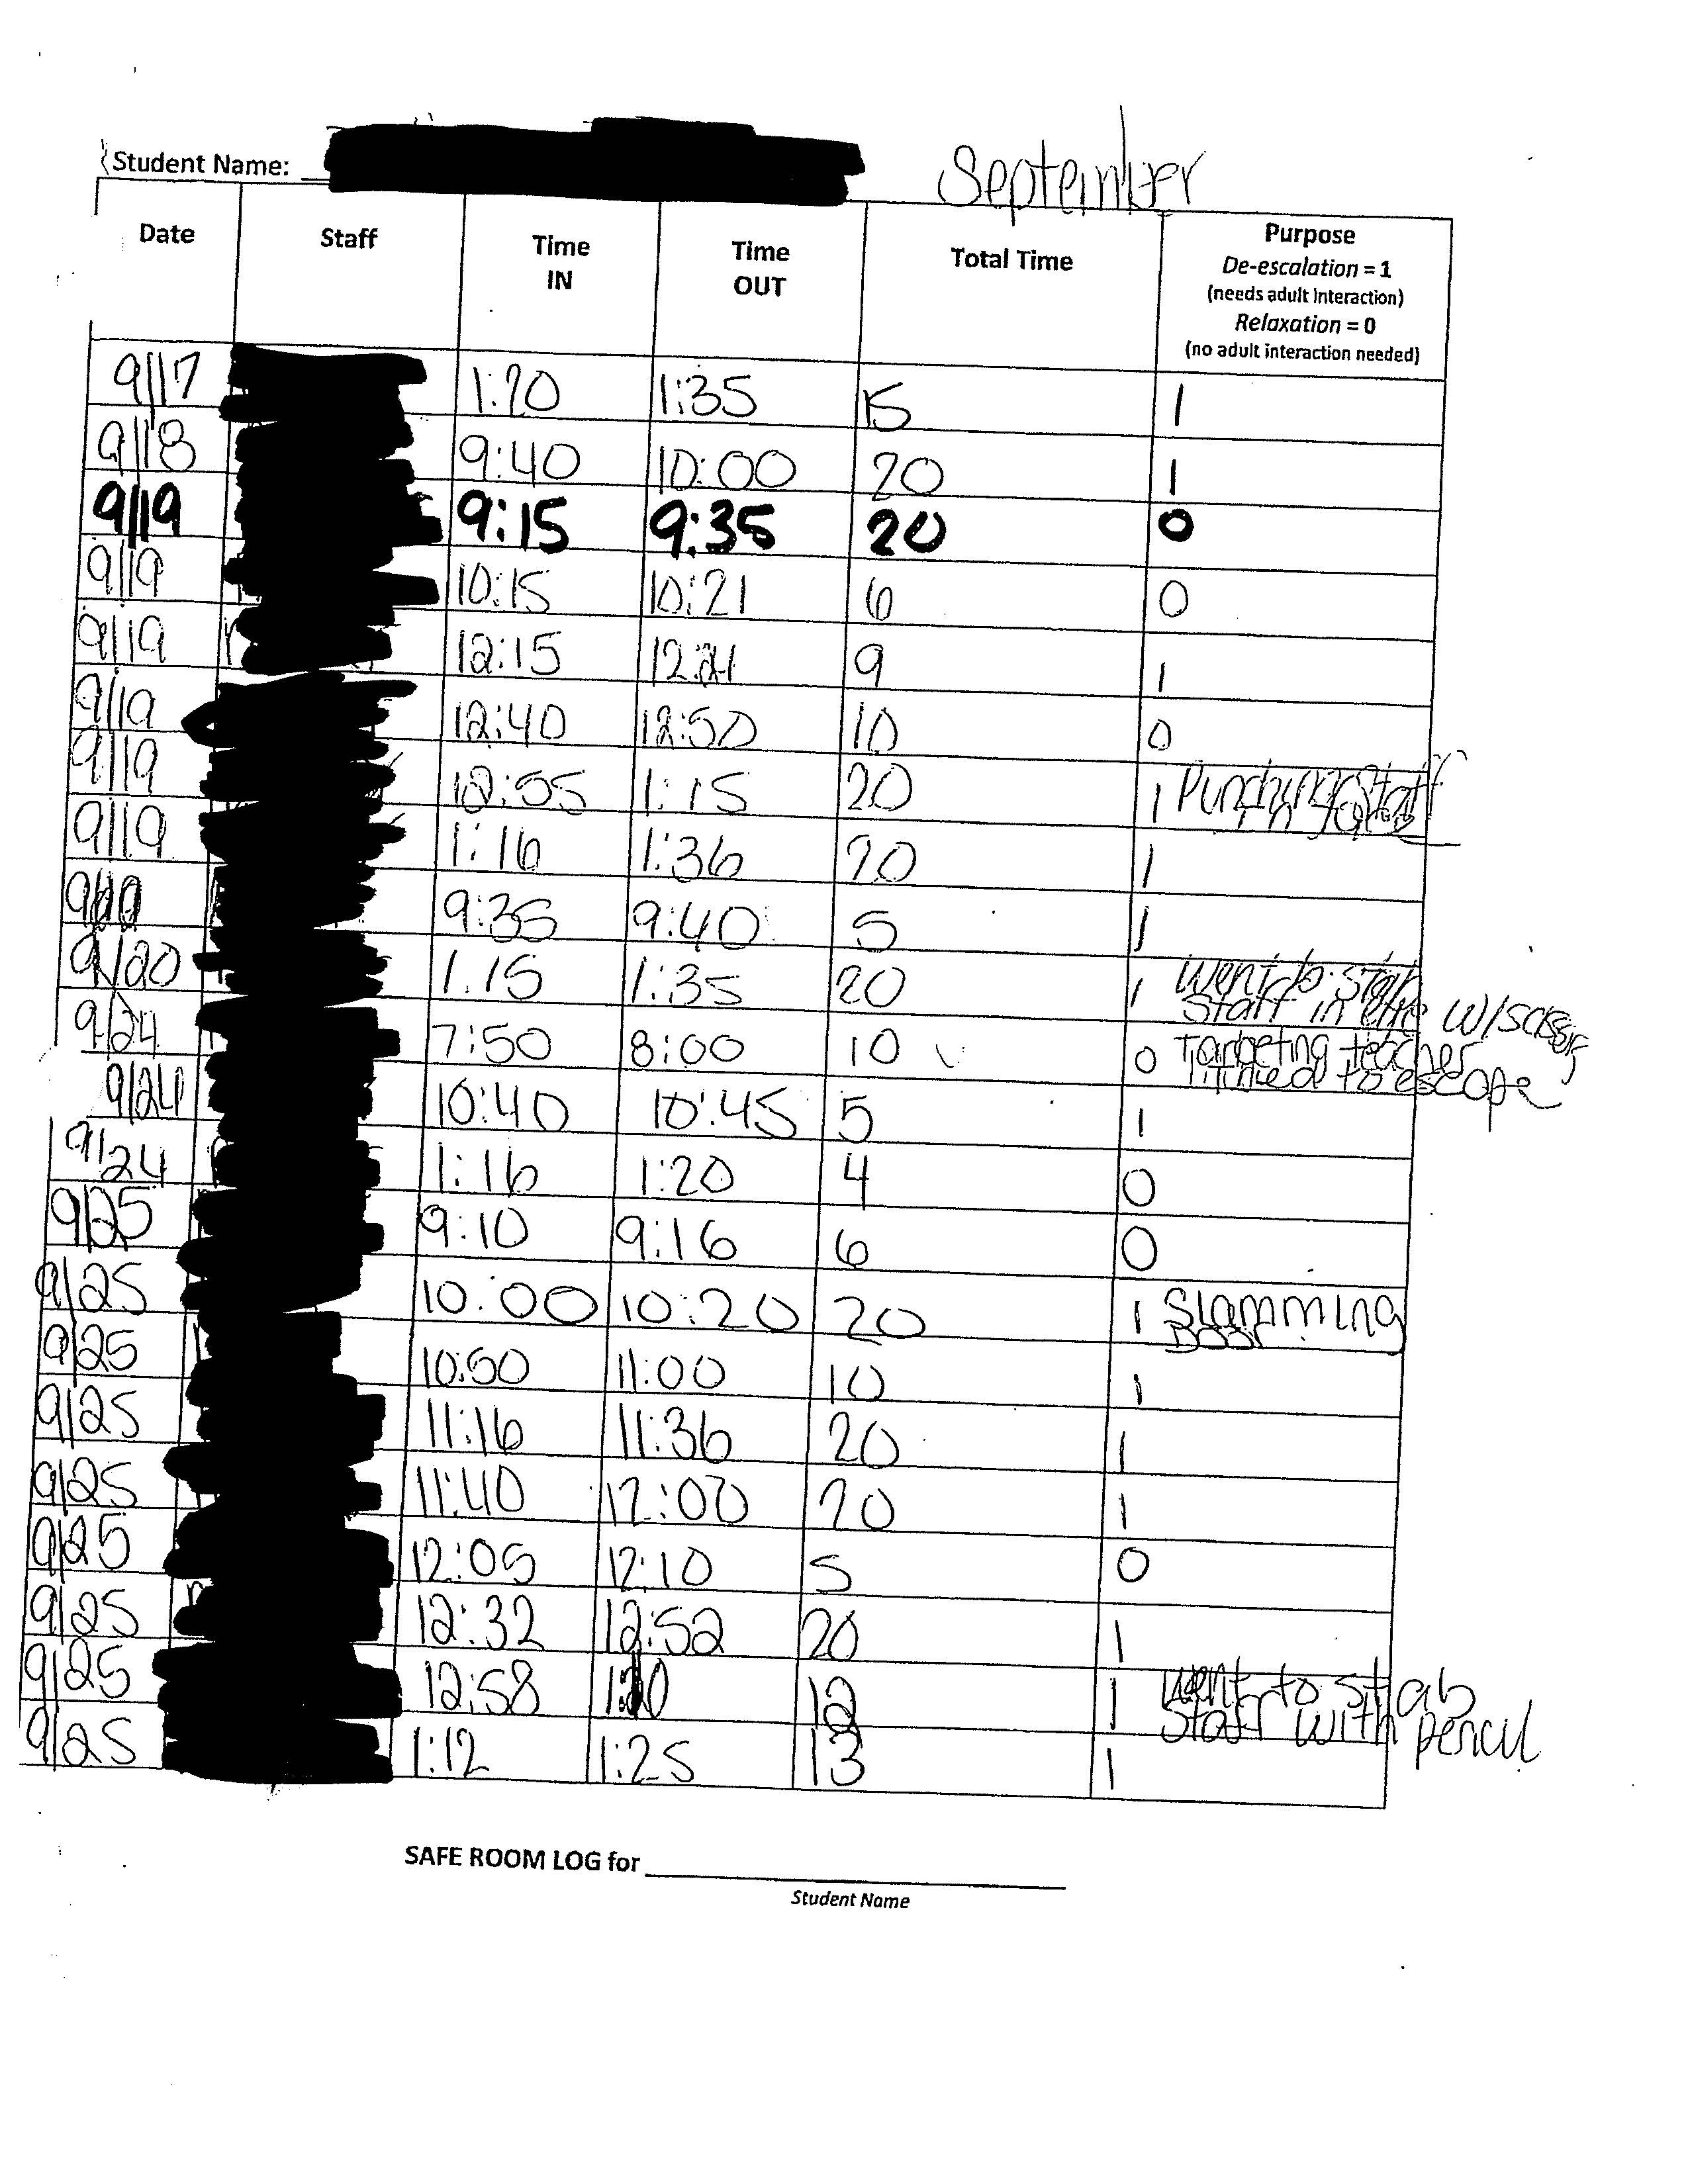 Student Name:
September
Date Staff Time IN Time OUT Total Time Purpose
De-escalation = 1
(needs adult interaction)
Relaxation = 0
(no adult interaction needed)
9/17 1:20 1:35 15 1
9/18 9:40 10:00 20 1
9/19 9:15 9:35 20 0
9/19 10:15 10:21 6 0
9/19 12:15 9 1
9/19 12:40 12:50 10 0
9/19 12:55 1:15 20 1 Punching Staff
in face
9/19 1:16 1:36 20 1
9:35 9:40 5 1
9/20 1:15 1:35 20 1 Went to stab
Staff in w/scissors
9/24 7:50 8:00 10 0 Targeting teacher,
tried to escape
9/24 10:40 10:45 5 1
9/24 1:16 1:20 4 0
9/25 9:10 9:16 6 0
9/25 10:00 10:20 20 1 Slamming
Door
9/25 10:50 11:00 10 1
9/25 11:16 11:36 20 1
9/25 11:40 12:00 20 1
9/25 12:05 12:10 5 0
9/25 12:32 12:52 20 1
9/25 12:58 12 1 Went to stab
Staff with pencil
9/25 1:12 1:25 13 1
SAFE ROOM LOG for
Student Name